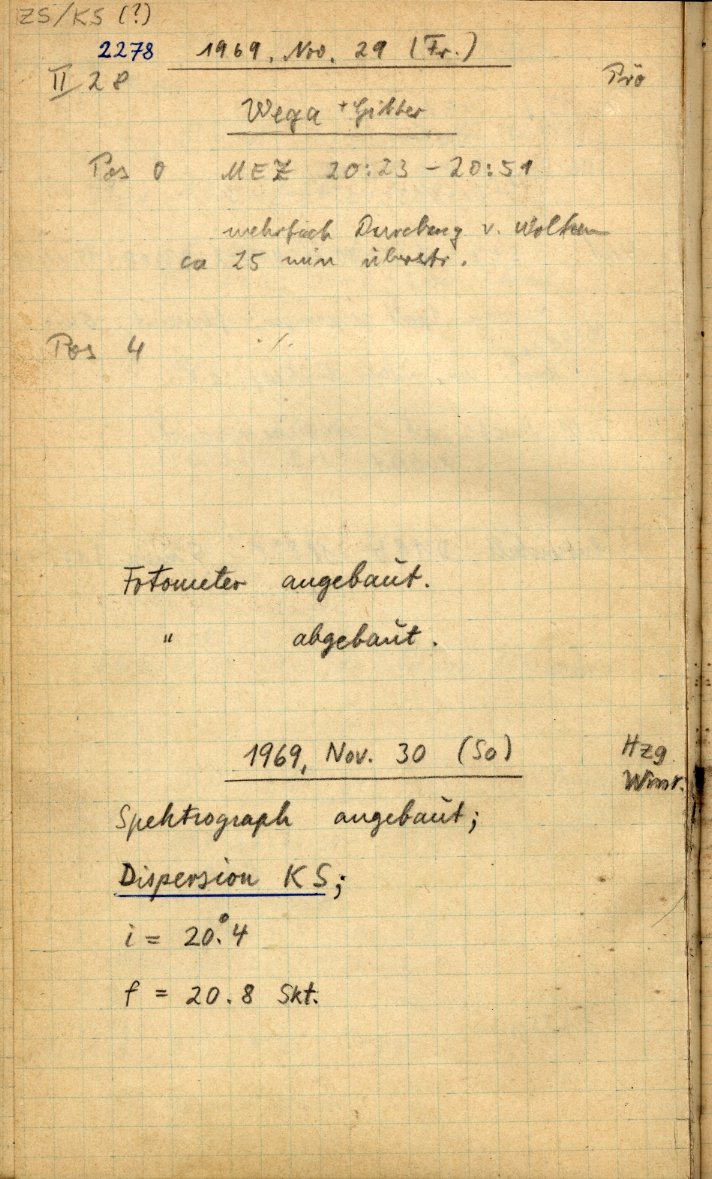 ZS/KS (?)
2278 1969, Nov. 29 (Fr.)
II 28 Prö
Wega + Gitter
Pos 0 MEZ 20:23 – 20:51
mehrfach Durchzug v. Wolken
ca 25 min überstr.
Pos 4 ./.
Fotometer angebaut.
" abgebaut.
1969, Nov. 30 (So) Hzg
Winr.
Spektrograph angebaut;
Dispersion KS;
i = 20.°4
f = 20.8 Skt.